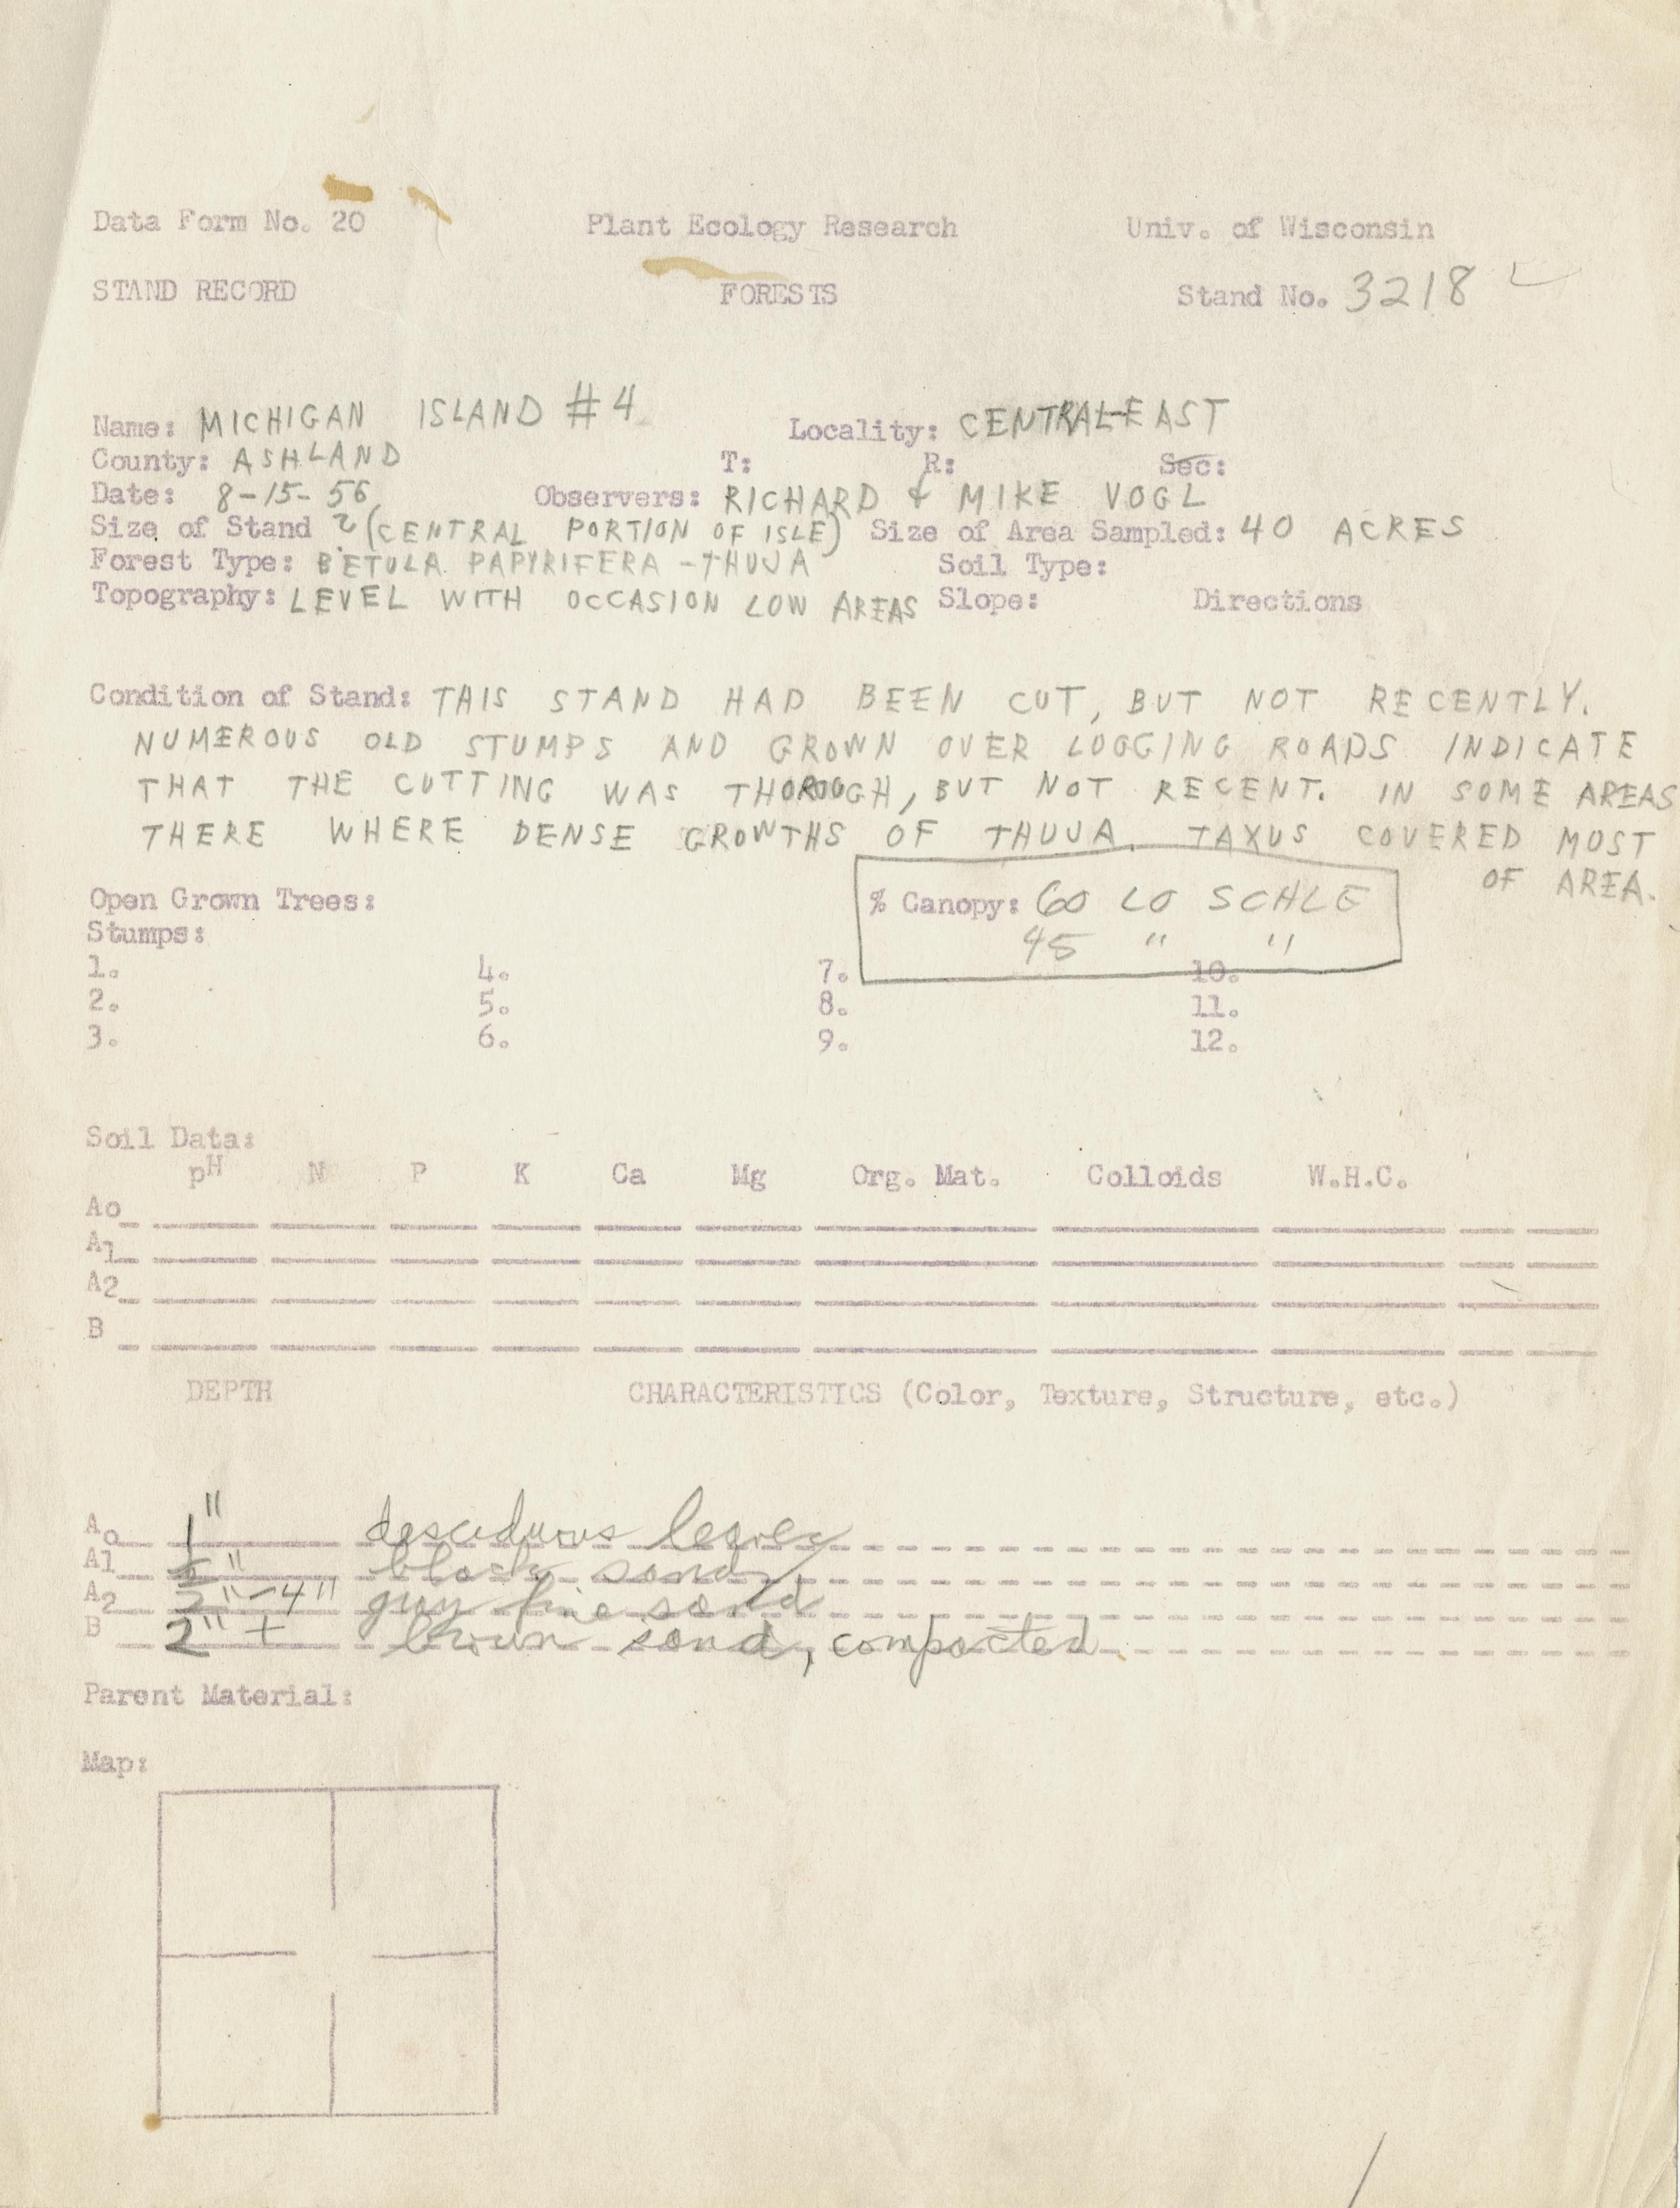 Data Form No. 20 Plant Ecology Research Univ. of Wisconsin
STAND RECORD FORESTS Stand No. 3218
Name: MICHIGAN ISLAND #4 Locality: CENTRAL-EAST
County: ASHLAND T: R: Sec:
Date: 8-15-56 Observers: RICHARD & MIKE VOGL
Size of Stand ? (CENTRAL PORTION OF ISLE) Size of Area Sampled: 40 ACRES
Forest Type: BETULA PAPYRIFERA - THUJA Soil Type:
Topography: LEVEL WITH OCCASION LOW AREAS Slope: Directions
Condition of Stand: THIS STAND HAD BEEN CUT, BUT NOT RECENTLY.
NUMEROUS OLD STUMPS AND GROWN OVER LOGGING ROADS INDICATE
THAT THE CUTTING WAS THOROUGH, BUT NOT RECENT. IN SOME AREAS
THERE WHERE DENSE GROWTHS OF THUJA. TAXUS COVERED MOST
OF AREA.
Open Grown Trees: % Canopy: 60 LO SCALE
Stumps: 45 " "
1. 4. 7. 10.
2. 5. 8. 11.
3. 6. 9. 12.
Soil Data:
pH N P K Ca Mg Org. Mat. Colloids W.H.C.
Ao
A1
A2
B
DEPTH CHARACTERISTICS (Color, Texture, Structure, etc.)
Ao 1" desciduous leaves
A1 " black sand
A2 "-4" gray fine sand
B 2" + brown sand, compacted
Parent Material:
Map: